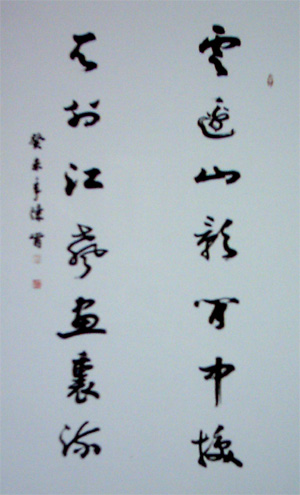 雲邊山影中
天外江聲畫裏流
癸未年陳